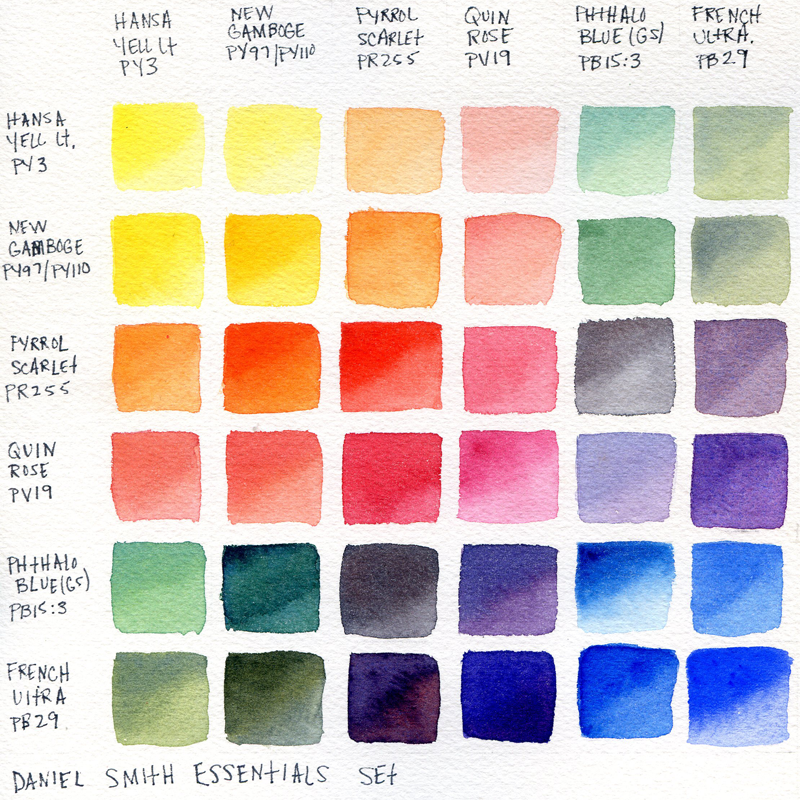 HANSA
YELL Lt
PY3
NEW
GAMBOGE
PY97/PY110
PYRROL
SCARLEt
PR255
QUIN
ROSE
PV19
PHtHALO
BLUE (GS)
PB15:3
FRENCH
ULtRA.
PB29
HANSA
YELL Lt.
PY3
NEW
GAMBOGE
PY97/PY110
PYRROL
SCARLEt
PR255
QUIN
ROSE
PV19
PHtHALO
BLUE(GS)
PB15:3
FRENCH
UltRA
PB29
DANIEL SMITH ESSENTIALS SEt